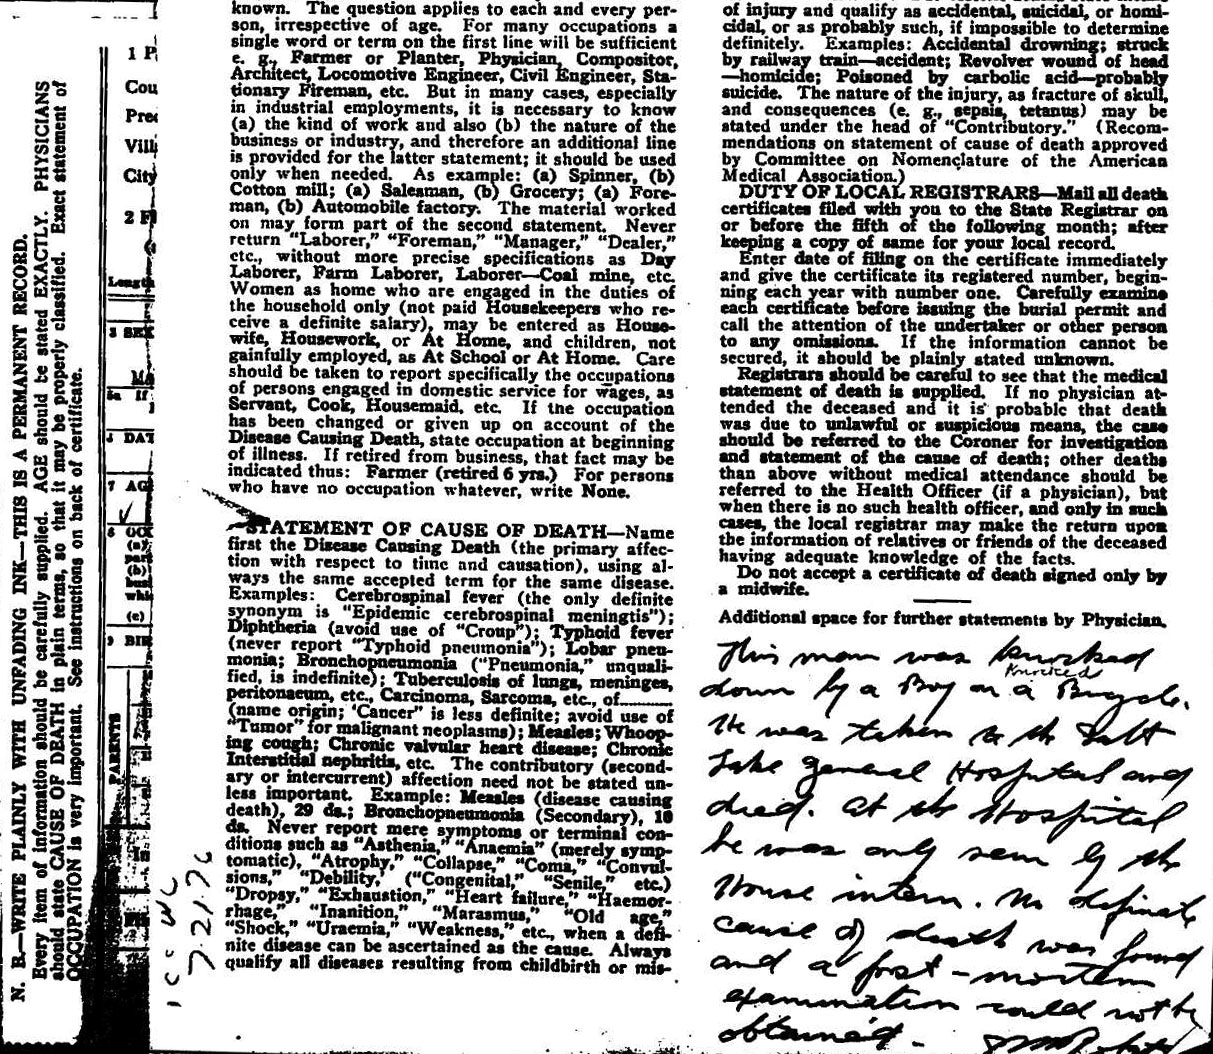 N. B.—WRITE PLAINLY WITH UNFADING INK—THIS IS A PERMANENT RECORD.
Every item of information should be carefully supplied. AGE should be stated EXACTLY. PHYSICIANS
should state CAUSE OF DEATH in plain terms, so that it may be properly classified. Exact statement of
OCCUPATION is very important. See instructions on back of certificate.
1 P
Cou
Prec
Vill
City
2 F
Length
3 SEX
Ma
5a If
6 DAT
7 AG
8 OCC
(a)
(b)
whic
(c)
9 BIR
PARENTS
known. The question applies to each and every per-
son, irrespective of age. For many occupations a
single word or term on the first line will be sufficient
e. g., Farmer or Planter, Physician, Compositor,
Architect, Locomotive Engineer, Civil Engineer, Sta-
tionary Fireman, etc. But in many cases, especially
in industrial employments, it is necessary to know
(a) the kind of work and also (b) the nature of the
business or industry, and therefore an additional line
is provided for the latter statement; it should be used
only when needed. As example: (a) Spinner, (b)
Cotton mill; (a) Salesman, (b) Grocery; (a) Fore-
man, (b) Automobile factory. The material worked
on may form part of the second statement. Never
return "Laborer," "Foreman," "Manager," "Dealer,"
etc., without more precise specifications as Day
Laborer, Farm Laborer, Laborer—Coal mine, etc.
Women as home who are engaged in the duties of
the household only (not paid Housekeepers who re-
ceive a definite salary), may be entered as House-
wife, Housework, or At Home, and children, not
gainfully employed, as At School or At Home. Care
should be taken to report specifically the occupations
of persons engaged in domestic service for wages, as
Servant, Cook, Housemaid, etc. If the occupation
has been changed or given up on account of the
Disease Causing Death, state occupation at beginning
of illness. If retired from business, that fact may be
indicated thus: Farmer (retired 6 yrs.) For persons
who have no occupation whatever, write None.
STATEMENT OF CAUSE OF DEATH—Name
first the Disease Causing Death (the primary affec-
tion with respect to time and causation), using al-
ways the same accepted term for the same disease.
Examples: Cerebrospinal fever (the only definite
synonym is "Epidemic cerebrospinal meningtis");
Diphtheria (avoid use of "Croup"); Typhoid fever
(never report "Typhoid pneumonia"); Lobar pneu-
monia; Bronchopneumonia ("Pneumonia," unquali-
fied, is indefinite); Tuberculosis of lungs, meninges,
peritonaeum, etc., Carcinoma, Sarcoma, etc., of..........
(name origin; 'Cancer" is less definite; avoid use of
"Tumor" for malignant neoplasms); Measles; Whoop-
ing cough; Chronic valvular heart disease; Chronic
Interstitial nephritis, etc. The contributory (second-
ary or intercurrent) affection need not be stated un-
less important. Example: Measles (disease causing
death), 29 ds.; Bronchopneumonia (Secondary), 10
ds. Never report mere symptoms or terminal con-
ditions such as "Asthenia," "Anaemia" (merely symp-
tomatic), "Atrophy," "Collapse," "Coma," "Convul-
sions," "Debility," ("Congenital," "Senile," etc.)
"Dropsy," "Exhaustion," "Heart failure," "Haemor-
rhage," "Inanition," "Marasmus," "Old age,"
"Shock," "Uraemia," "Weakness," etc., when a defi-
nite disease can be ascertained as the cause. Always
qualify all diseases resulting from childbirth or mis-
7-21-76
of injury and qualify as accidental, suicidal, or homi-
cidal, or as probably such, if impossible to determine
definitely. Examples: Accidental drowning; struck
by railway train—accident; Revolver wound of head
—homicide; Poisoned by carbolic acid—probably
suicide. The nature of the injury, as fracture of skull,
and consequences (e. g., sepsis, tetanus) may be
stated under the head of "Contributory." (Recom-
mendations on statement of cause of death approved
by Committee on Nomenclature of the American
Medical Association.)
DUTY OF LOCAL REGISTRARS—Mail all death
certificates filed with you to the State Registrar on
or before the fifth of the following month; after
keeping a copy of same for your local record.
Enter date of filing on the certificate immediately
and give the certificate its registered number, begin-
ning each year with number one. Carefully examine
each certificate before issuing the burial permit and
call the attention of the undertaker or other person
to any omissions. If the information cannot be
secured, it should be plainly stated unknown.
Registrars should be careful to see that the medical
statement of death is supplied. If no physician at-
tended the deceased and it is probable that death
was due to unlawful or suspicious means, the case
should be referred to the Coroner for investigation
and statement of the cause of death; other deaths
than above without medical attendance should be
referred to the Health Officer (if a physician), but
when there is no such health officer, and only in such
cases, the local registrar may make the return upon
the information of relatives or friends of the deceased
having adequate knowledge of the facts.
Do not accept a certificate of death signed only by
a midwife.
Additional space for further statements by Physician.
This man was knocked
knocked
down by a Boy on a Bicycle.
He was taken to the Salt
Lake general Hospital and
died. at the Hospital
he was only seen by the
House intern. No definate
cause of death was found
and a post-mortem
examination could not be
obtained.